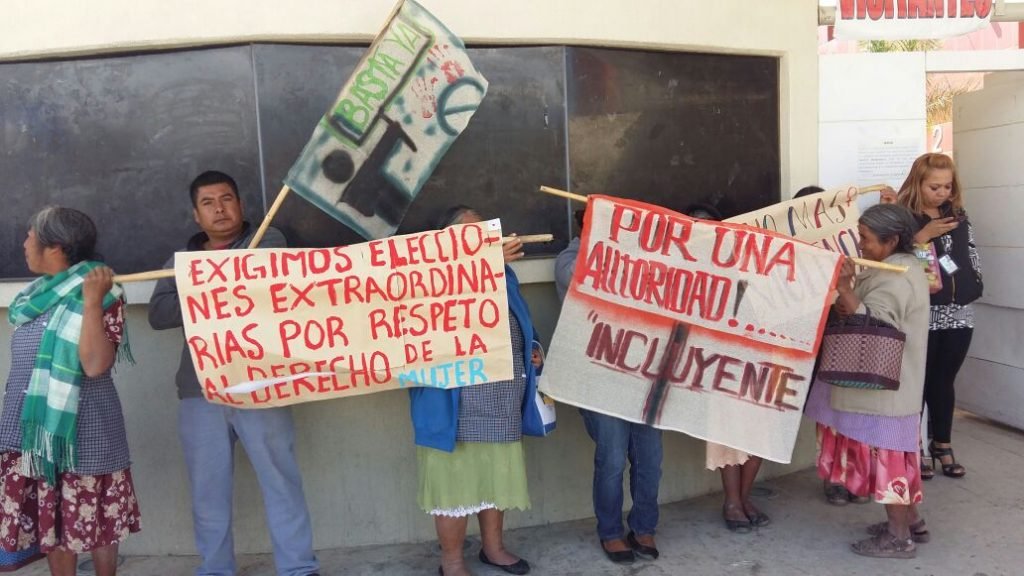 VIGILANTES
BASTA YA!
EXIGIMOS ELECCIO-
NES EXTRAORDINA-
RIAS POR RESPETO
AL DERECHO DE LA
MUJER
POR UNA
AUTORIDAD!......
"INCLUYENTE
NO MAS